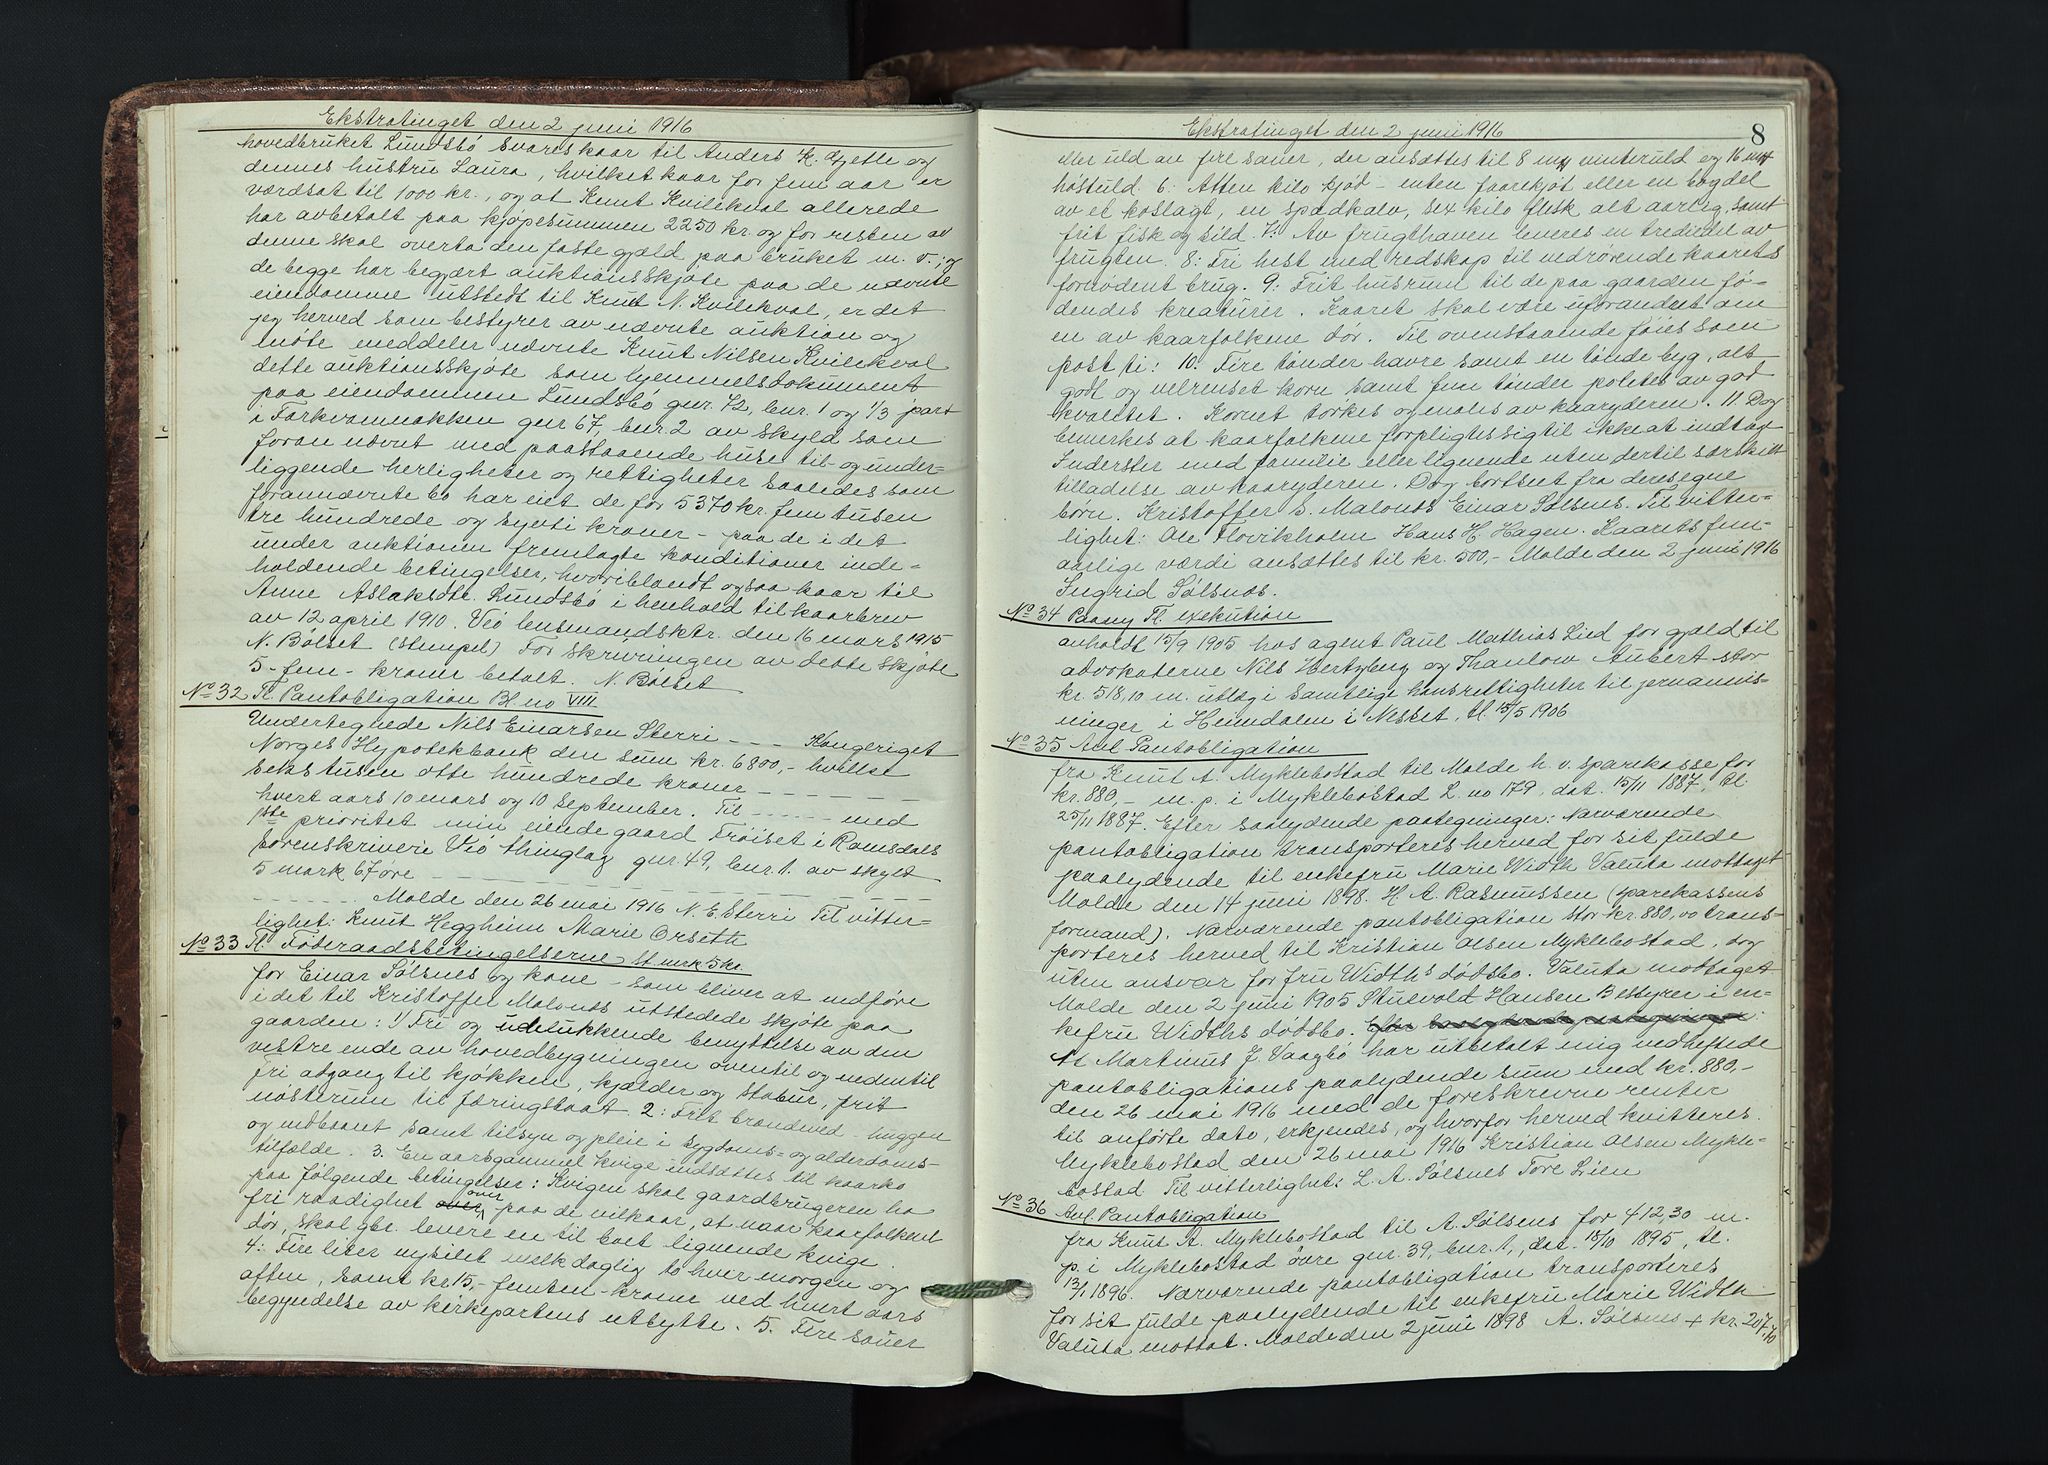 Ekstratinget den 2 juni 1916
hovedbruket Lundsbö svares kaar til Anders K. Gjelle og
dennes hustru Laura, hvilket kaar for fem aar er
værdsat til 1000 kr., og at Knut Kvilekval allerede
har avbetalt paa kjøpesummen 2250 kr. og for resten av
denne skal overta den faste gjæld paa bruket m. v., og
de begge har begjært auktionsskjøte paa de nævnte
eiendomme utstedt til Knut N. Kvilekval, er det
jeg herved som bestyrer av nævnte auktion og
meddeler nævnte Knut Nilsen Kvilekval
dette auktionsskjøte som hjemmelsdokument
paa eiendommen Lundsbö gnr. 72, bnr. 1 og 1/3 part
i gnr 67, bnr. 2 av skyld som
foran nævnt med paastaaende huse til- og under-
liggende herligheter og rettigheter saaledes som
forannævnte bo har eiet de for 5370 kr. fem tusen
tre hundrede og sytti kroner - paa de i det
under auktionen fremlagte konditioner inde-
holdende betingelser, hvoriblandt ogsaa kaar til
Anne Aslaksdtr. Lundsbö i henhold til kaarbrev
av 12 april 1910. Veö lensmandsktr. den 16 mars 1915
N. Bölset (stempel) For skrivningen av dette skjøte
5 - fem - kroner betalt. N. Bölset
No 32 Tl. Pantobligation Bl. no VIII
Undertegnede Nils Einarsen Sterri - - - Kongeriget
Norges Hypotekbank den sum kr. 6800,- hvilket
sekstusen otte hundrede kroner - - - - - -
hvert aars 10 mars og 10 September. Til - - - - - med
1ste prioritet min eiende gaard Fröiset i Romsdals
Sorenskriveri Veö thinglag gnr. 49, bnr. 1. av skyld
5 mark 67 øre - - - - - - - - - - - - -
- - - - - - Molde den 26 mai 1916 N. E. Sterri Til vitter-
lighet: Knut Heggheim Marie Orseth
No 33 Tl. Föderaadsbetingelserne St. merk 5 kr.
for Einar Sölsnes og kone - som bliver at indføre
i det til Kristoffer Malonæs utstedede skjøte paa
gaarden: 1/ Fri og udelukkende benyttelse av den
vestre ende av hovedbygningen oventil og nedentil
fri adgang til kjøkken, kjælder og stabur, frit
nøsterum til færingsbaat. 2: Frit brændeved - huggen
og indbaaret samt tilsyn og pleie i sygdoms- og alderdoms-
tilfælde. 3. En aarsgammel kvige indsættes til kaarko
paa følgende betingelser: Kvigen skal gaardbrugeren ha
fri raadighet over paa de vilkaar, at naar kaarfolkene
dör, skal gbr. levere en til boet lignende kvige.
4: Fire liter nysilet melk daglig to hver morgen og
aften, samt kr 15,- femten - kroner ved hvert aars
begyndelse av kirkepartens utbytte. 5. Fire sauer
Ekstratinget den 2 juni 1916
8
eller uld av fire sauer, der ansættes til 8 mrk vinteruld og 16 mrk
høstuld. 6: Atten kilo kjød - enten faarekjøt eller en bogdel
av et koslagt, en spædkalv, sex kilo flesk alt aarlig, samt
frit fisk og sild. 7: Av frugthaven leveres en tredjedel av
frugten. 8: Fri hest med redskap til vedrørende kaarets
fornødent brug. 9: Frit husrum til de paa gaarden fö-
dendes kreaturer. Kaaret skal være uforandret om
en av kaarfolkene dör. Til ovenstaaende föies som
post ti: 10. Fire tønder havre samt en tønde byg, alt
godt og velrenset korn samt fem tønder potetes av god
kvalitet. Kornet tørkes og males av kaaryderen. 11 Dog
bemerkes at kaarfolkene forpligtes sig til ikke at indtage
Inderster med familie eller lignende uten dertil særskilt
tilladelse av kaaryderen. Dog bortset fra deres egne
børn. Kristoffer S. Malonæs Einar Sölsnes. Til vitter-
lighet: Ole Flovikholm Hans H. Hagen. Kaarets fem-
aarlige værdi ansættes til kr. 500,- Molde den 2 juni 1916
Ingrid Sölsnes.
No 34 Paany Tl. exekution
avholdt 15/9 1905 hos agent Paul Mathias Lied for gjæld til
advokaterne Nils Hertzberg og Thanlow Aubert stor
kr. 518,10 m. utlæg i samtlige hans rettigheter til
i Heimdalen i Nesset, tl. 15/5 1906
No 35 Avl. Pantobligation
fra Knut A. Myklebostad til Molde h. v. sparekasse for
kr. 880,- m. p. i Myklebostad L. no 179, dat. 15/11 1887, tl.
25/11 1887. Efter saalydende paategninger: Nærværende
pantobligation transporteres herved for sit fulde
paalydende til enkefru Marie Width Valuta mottaget
Molde den 14 juni 1898. H. A. Rasmussen (sparekassens
formand). Nærværende pantobligation stor kr. 880,00 trans-
porteres herved til Kristian Olsen Myklebostad, dog
uten ansvar for fru Widths dødsbo. Valuta mottaget
Molde den 2 juni 1905 Stuevold Hansen Bestyrer i en-
kefru Widths dødsbo.
At Martinus J. Vaagbö har utbetalt mig vedheftede
pantobligations paalydende sum med kr. 880,-
den 26 mai 1916 med de foreskrevne renter
til anførte dato, erkjendes, og hvorfor herved kvitteres.
Myklebostad den 26 mai 1916 Kristian Olsen Mykle-
bostad Til vitterlighet: L. A. Sölsnes Tore Lien
No 36 Avl. Pantobligation
fra Knut A. Myklebostad til A. Sölsnes for 412,30 m.
p. i Myklebostad övre gnr. 39, bnr. 1, dat. 18/10 1895, tl.
13/1 1896. Nærværende pantobligation transporteres
for sit fulde paalydende til enkefru Marie Width
Valuta mottat. Molde den 2 juni 1898 A. Sölsnes + kr. 207,70